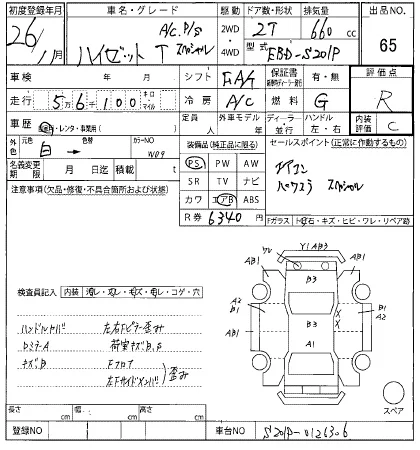 初度登録年月 車名・グレード 駆動 ドア数・形状 排気量 出品NO.
26/ /月 ハイゼット T A/C. P/S スペシャル 2WD・4WD 2T 660 cc 65
型式 EBD-S201P
車検 年 月 シフト FA4 保証書 有・無 評価点
走行 56100 キロ マイル 冷房 A/C 燃料 G R
車歴 自家用・レンタ・事業用( ) 定員 人 外車モデル 年 ディーラー・並行 ハンドル 左・右 内装評価 C
外色 元色 白 色替 カラーNO W09 装備品(純正品に限る) セールスポイント(正常に作動するもの)
名義変更期限 月 日迄 積載 t PS PW AW エアコン
注意事項(欠品・修復・不具合箇所および状態) SR TV ナビ パワステ スペシャル
カワ エアB ABS
R券 6340 円 Fガラス 飛石・キズ・ヒビ・ワレ・リペア跡
ワレ Y1AB3
AB1 AB1
B3
検査員記入 内装 汚レ・スレ・キズ・切レ・コゲ・穴
A2 B1
B1 A2
ハンドルカバー 左右Fピラー歪み AB1 B3
ロミラーA 荷室キズB,P A1
キズB Fフロア
左Fサイドメンバ 歪み
スペア
長さ cm 幅 cm 高さ cm
登録NO 車台NO S201P-0126306